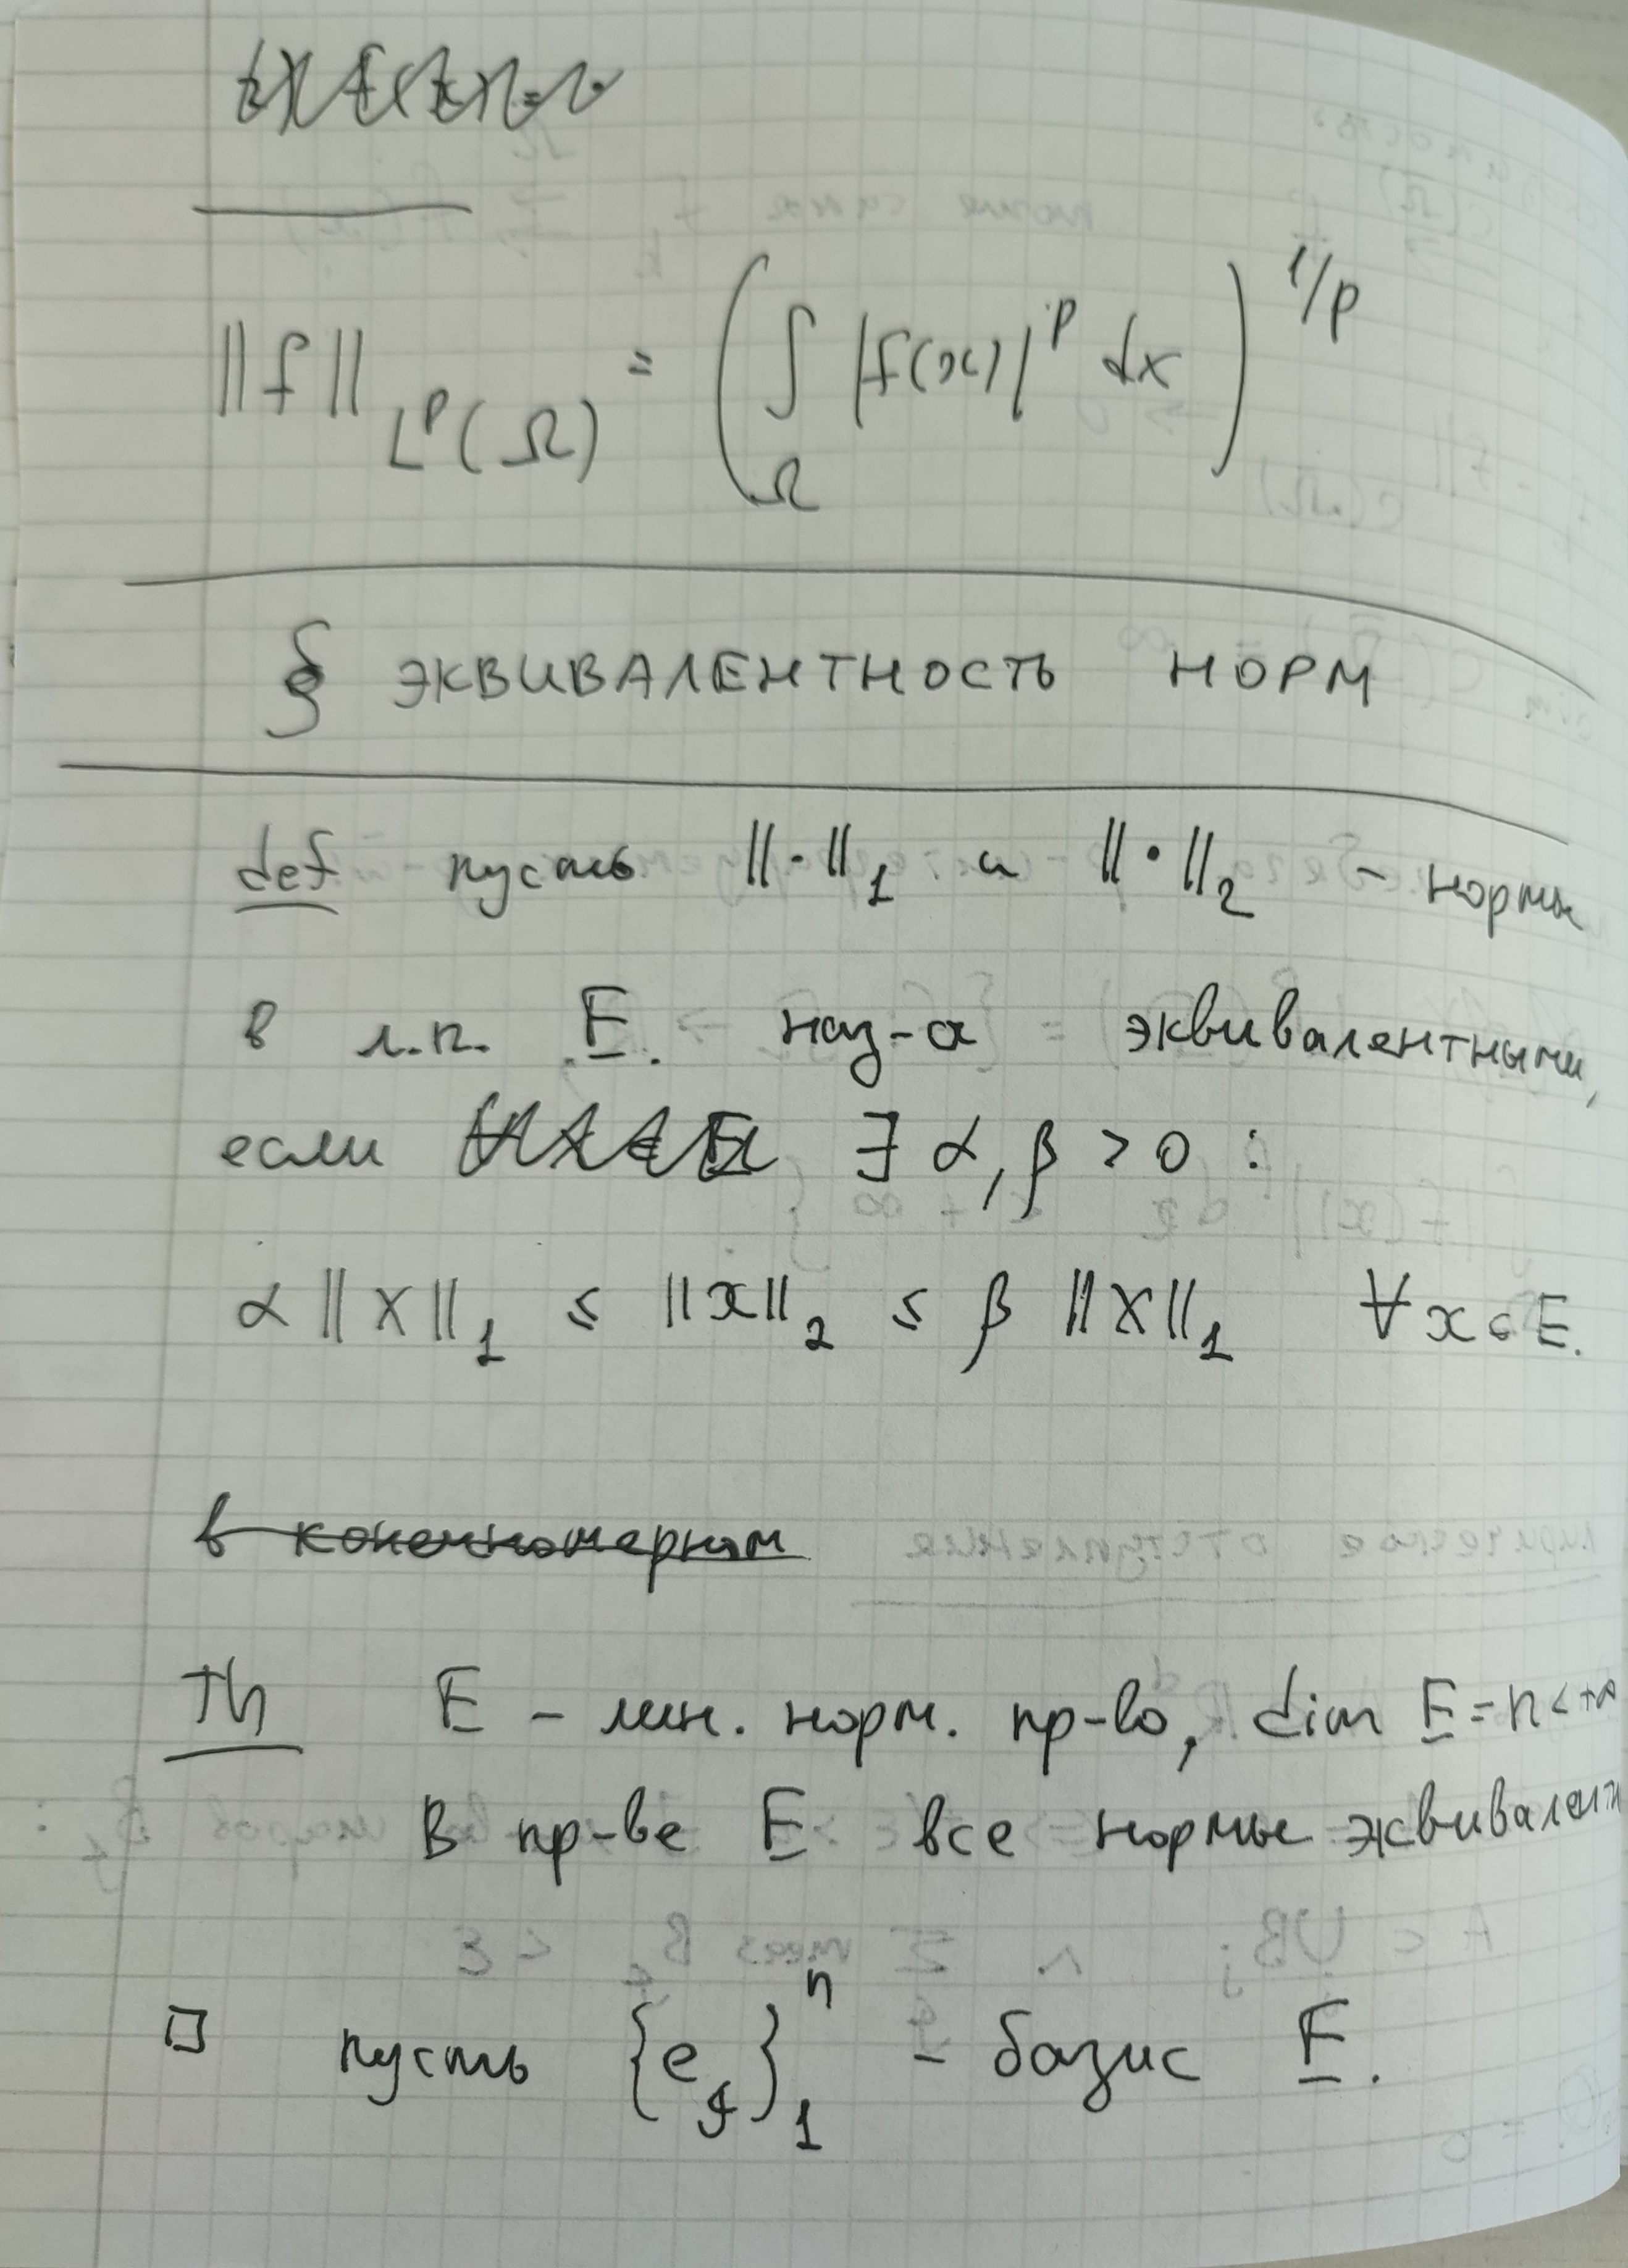 ||f||_{L^p(Ω)} = ( ∫_Ω |f(x)|^p dx )^{1/p}
§ ЭКВИВАЛЕНТНОСТЬ НОРМ
def пусть ||·||_1 и ||·||_2 – нормы
в л.п. E. наз-я эквивалентными,
если ∃ α, β > 0 :
α ||x||_1 ≤ ||x||_2 ≤ β ||x||_1 ∀ x ∈ E.
в конечномерном
Th E – лин. норм. пр-во, dim E = n < +∞
В пр-ве E все нормы эквивалентн
□ пусть {e_j}_1^n – базис E.